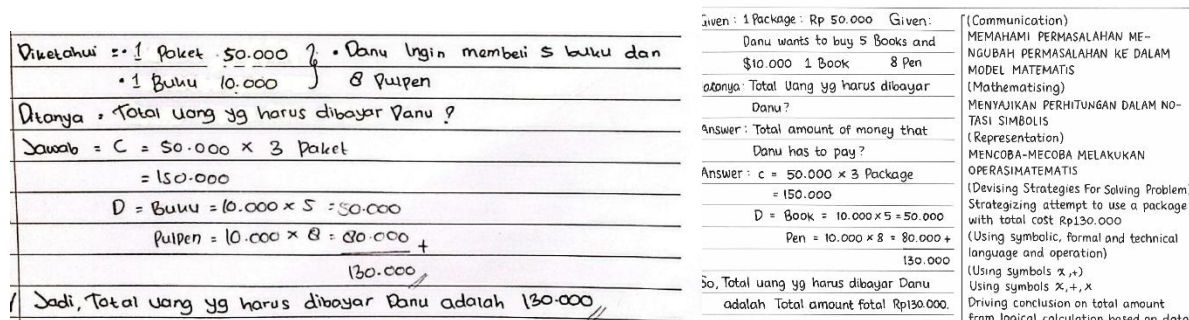 Diketahui = • 1 Paket 50.000 } • Danu Ingin membeli 5 buku dan
• 1 Buku 10.000 8 Pulpen
Ditanya : Total uang yg harus dibayar Danu ?
Jawab = C = 50.000 × 3 Paket
= 150.000
D = Buku = 10.000 × 5 = 50.000
Pulpen = 10.000 × 8 = 80.000 +
130.000 //
Jadi, Total uang yg harus dibayar Danu adalah 130.000 //
Given : 1 Package : Rp 50.000 Given:
Danu wants to buy 5 Books and
$10.000 1 Book 8 Pen
atanya: Total Uang yg harus dibayar
Danu?
Answer : Total amount of money that
Danu has to pay?
Answer : c = 50.000 × 3 Package
= 150.000
D = Book = 10.000 × 5 = 50.000
Pen = 10.000 × 8 = 80.000 +
130.000
So, Total uang yg harus dibayar Danu
adalah Total amount fotal Rp130.000.
(Communication)
MEMAHAMI PERMASALAHAN ME-
NGUBAH PERMASALAHAN KE DALAM
MODEL MATEMATIS
(Mathematising)
MENYAJIKAN PERHITUNGAN DALAM NO-
TASI SIMBOLIS
(Representation)
MENCOBA-MECOBA MELAKUKAN
OPERASIMATEMATIS
(Devising Strategies For Solving Problem
Strategizing attempt to use a package
with total cost Rp130.000
(Using symbolic, formal and technical
language and operation)
(Using symbols x,+)
Using symbols x,+,x
Driving conclusion on total amount
from logical calculation based on data